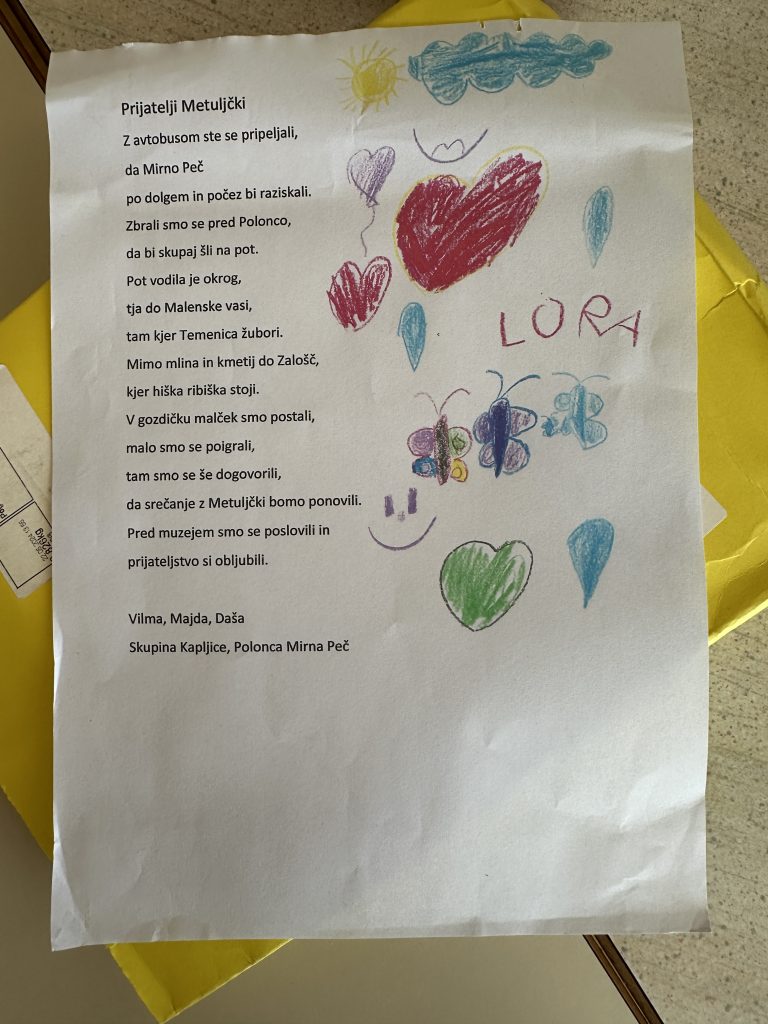 Prijatelji Metuljčki
Z avtobusom ste se pripeljali,
da Mirno Peč
po dolgem in počez bi raziskali.
Zbrali smo se pred Polonco,
da bi skupaj šli na pot.
Pot vodila je okrog,
tja do Malenske vasi,
tam kjer Temenica žubori.
Mimo mlina in kmetij do Zalošč,
kjer hiška ribiška stoji.
V gozdičku malček smo postali,
malo smo se poigrali,
tam smo se še dogovorili,
da srečanje z Metuljčki bomo ponovili.
Pred muzejem smo se poslovili in
prijateljstvo si obljubili.
Vilma, Majda, Daša
Skupina Kapljice, Polonca Mirna Peč
LORA